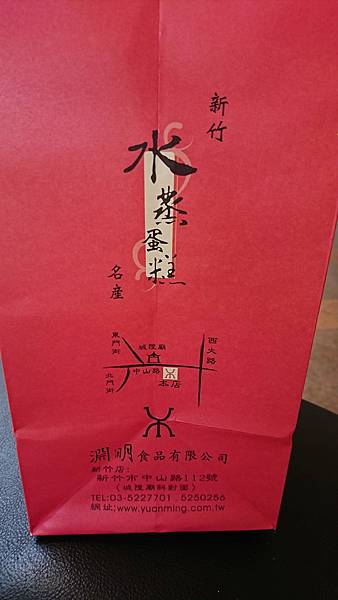 新竹
水蒸蛋糕
名産
東門街
城隍廟
西大路
北門街
中山路
本店
淵明食品有限公司
新竹店:
新竹市中山路112號
(城隍廟斜對面)
TEL:03-5227701 . 5250256
網址;www.yuanming.com.tw